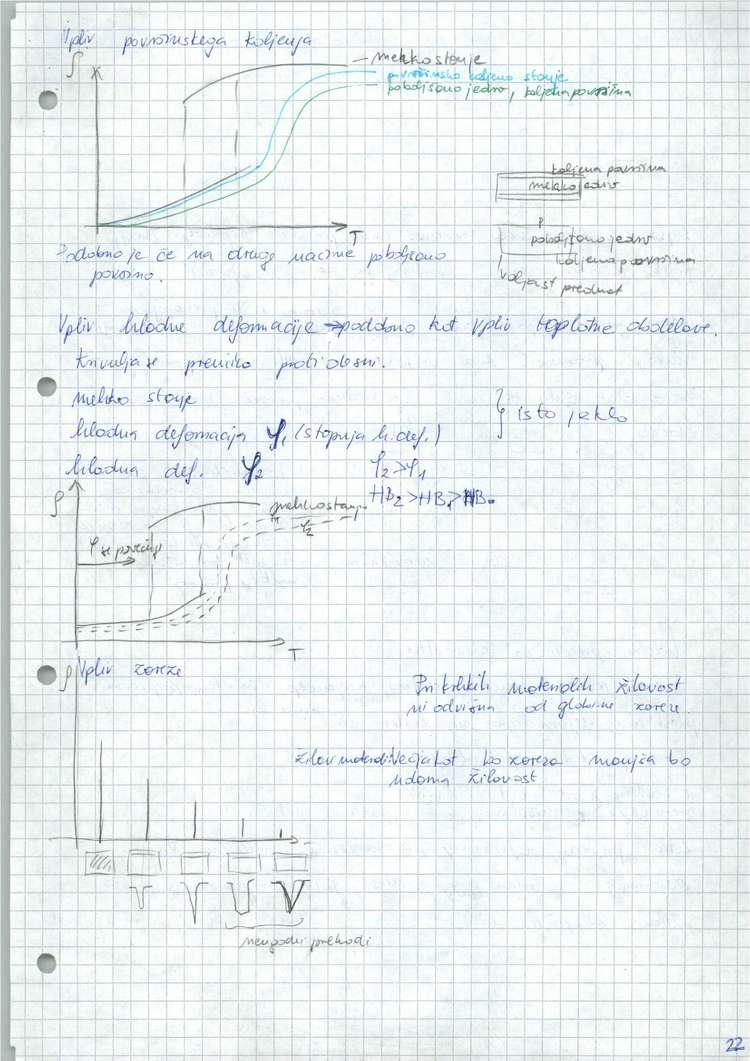 Vpliv površinskega kaljenja
ρ
mehko stanje
površinsko kaljeno stanje
poboljšano jedro, kaljena površina
kaljena površina
mehko jedro
poboljšano jedro
kaljena površina
valjast predmet
T
Podobno je če na druge načine poboljšano
površino.
Vpliv hladne deformacije → podobno kot vpliv toplotne obdelave.
Krivulja se premika proti desni.
mehko stanje
hladna deformacija φ1 (stopnja h. def.)
} isto jeklo
hladna def. φ2
φ2>φ1
HB2>HB1>HB0
ρ
mehko stanje
φ1
φ2
φ se povečuje
T
ρ
Vpliv zareze
Pri krhkih materialih žilavost
ni odvisna od globine zareze.
žilav material: Večja kot bo zareza manjša bo
udarna žilavost
neugodni prehodi
22